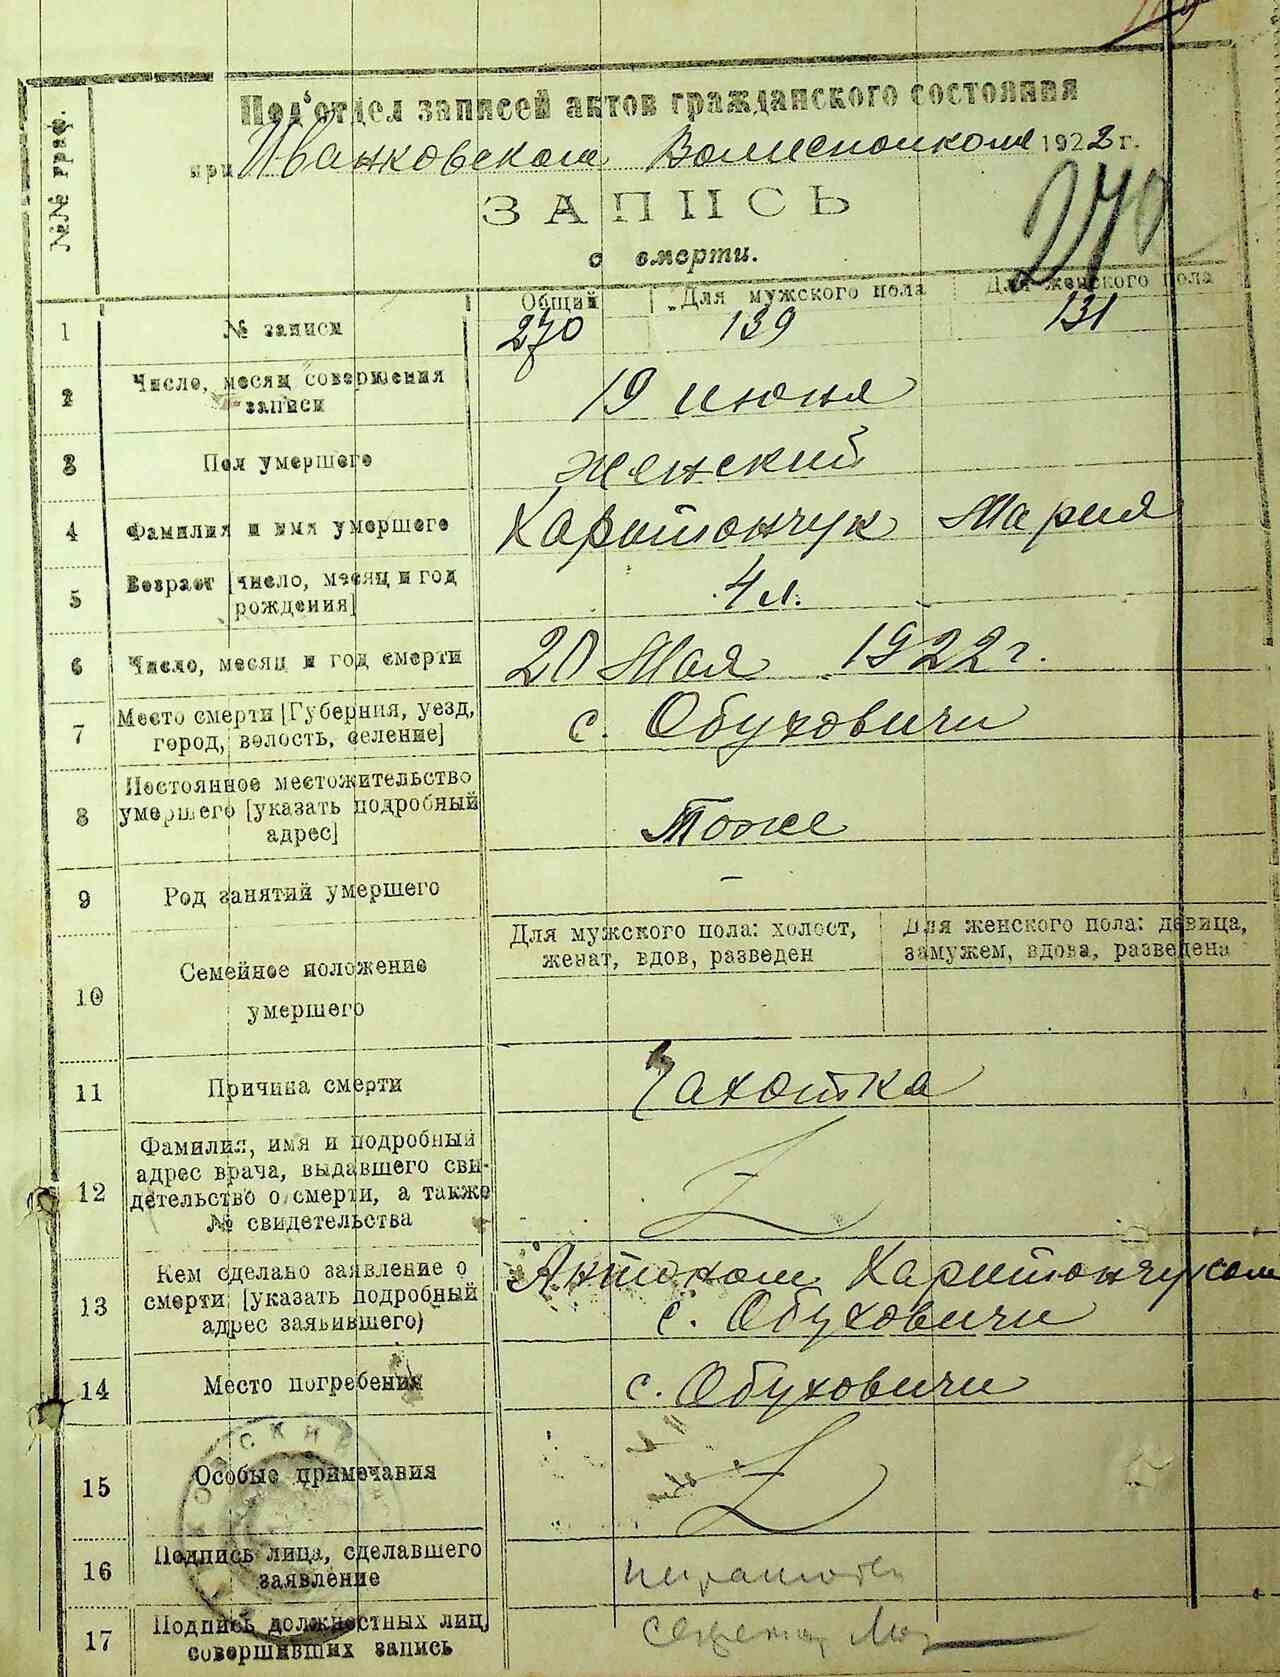 Подотдел записей актов гражданского состояния
при Иванковском Волисполкоме 1922 г.
ЗАПИСЬ
о смерти.
270
№№ граф.
Общий Для мужского пола Для женского пола
1 № записи 270 139 131
2 Число, месяц совершения
записи 19 июня
3 Пол умершего женский
4 Фамилия и имя умершего Харитончук Мария
5 Возраст [число, месяц и год
рождения] 4 л.
6 Число, месяц и год смерти 20 Мая 1922 г.
7 Место смерти [Губерния, уезд,
город, волость, селение] с. Обуховичи
8 Постоянное местожительство
умершего [указать подробный
адрес] Тоже
9 Род занятий умершего –
10 Семейное положение
умершего
Для мужского пола: холост,
женат, вдов, разведен
Для женского пола: девица,
замужем, вдова, разведена
11 Причина смерти Чахотка
12 Фамилия, имя и подробный
адрес врача, выдавшего сви-
детельство о смерти, а также
№ свидетельства
13 Кем сделано заявление о
смерти [указать подробный
адрес заявившего)
Антоном Харитончуком
с. Обуховичи
14 Место погребения с. Обуховичи
15 Особые примечания
16 Подпись лица, сделавшего
заявление
17 Подпись должностных лиц,
совершивших запись